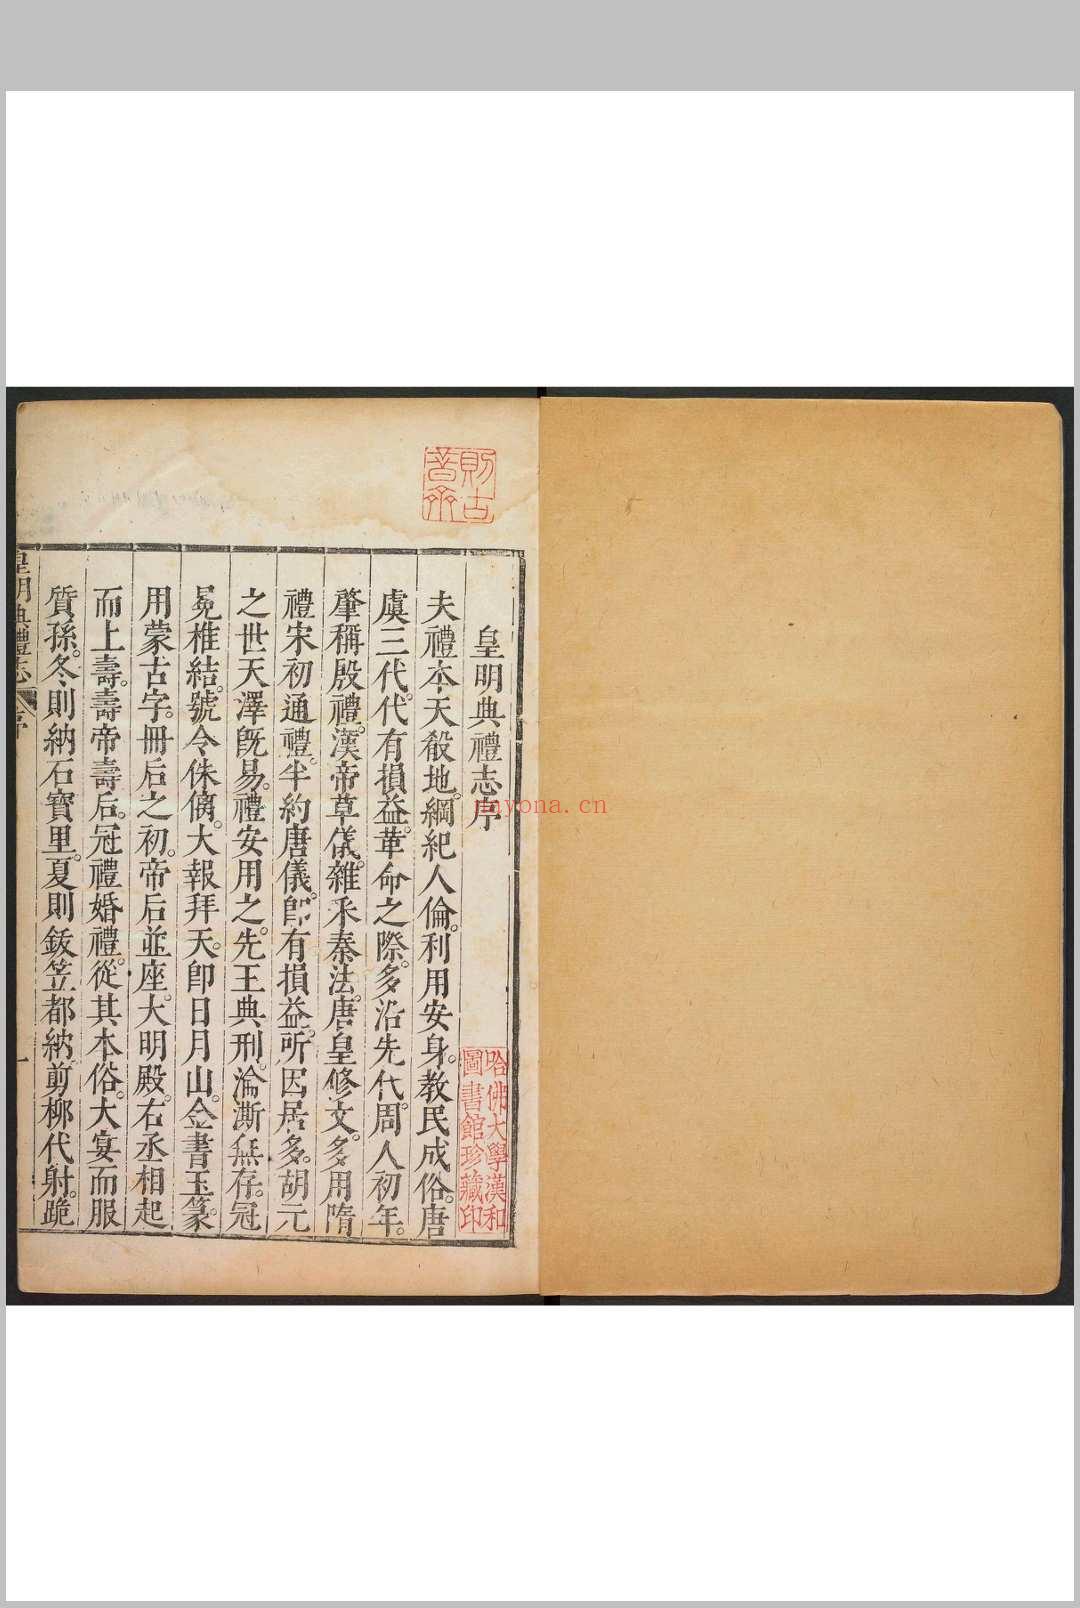 皇明典禮志序
夫禮本天殽地。綱紀人倫。利用安身。教民成俗。唐
虞三代。代有損益。革命之際。多沿先代。周人初年。
肇稱殷禮。漢帝草儀。雜采秦法。唐皇修文。多用隋
禮宋初通禮。半約唐儀。卽有損益。所因居多。胡元
之世天澤旣易。禮安用之。先王典刑。淪澌無存。冠
冕椎結。號令侏㒧。大報拜天。卽日月山。金書玉篆。
用蒙古字。冊后之初。帝后並座。大明殿。右丞相起
而上壽。壽帝壽后。冠禮婚禮。從其本俗。大宴而服
質孫。冬則納石寶里。夏則鈸笠都納。剪柳代射。跪
皇明典禮志 序 一
則古
昔齋
哈佛大學漢和
圖書館珍藏印
nayona.cn